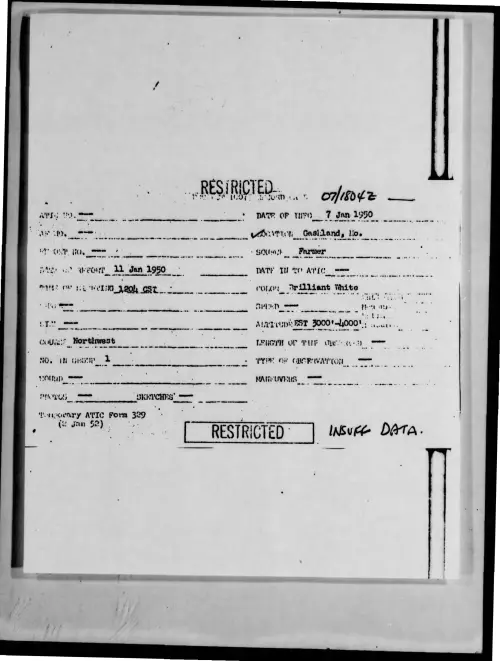 RESTRICTED
07/1804Z —
ATIC NO. — DATE OF INFO 7 Jan 1950
AF NO. — LOCATION Gashland, Mo.
REPORT NO. — SOURCE Farmer
DATE OF REPORT 11 Jan 1950 DATE IN TO ATIC —
TIME OF SIGHTING 1204 CST COLOR Brilliant White
— SPEED —
— ALTITUDE EST 3000'-4000'
COURSE Northwest LENGTH OF TIME OBSERVED —
NO. IN GROUP 1 TYPE OF OBSERVATION —
SOUND — MANEUVERS —
PHOTOS — SKETCHES —
Temporary ATIC Form 329
(2 Jan 52)
RESTRICTED INSUFF DATA.